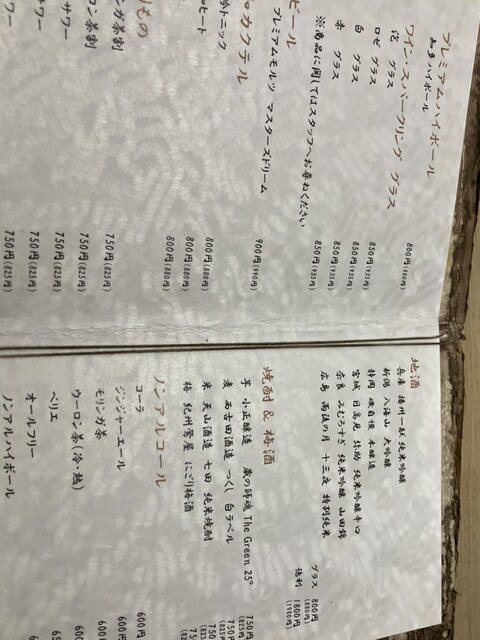 プレミアムハイボール
知多ハイボール 800円(880円)
ワイン・スパークリング グラス
泡 グラス 850円(935円)
ロゼ グラス 850円(935円)
白 グラス 850円(935円)
赤 グラス 850円(935円)
※商品に関してはスタッフへお尋ねください
ビール
プレミアムモルツ マスターズドリーム 900円(990円)
カクテル
トニック 800円(880円)
ヒート 800円(880円)
800円(880円)
もの
ンガ茶割 750円(825円)
コン茶割 750円(825円)
サワー 750円(825円)
サワー 750円(825円)
ワー 750円(825円)
地酒
グラス 800円(880円)
徳利 1800円(1980円)
兵庫 播州一献 純米吟醸
新潟 八海山 大吟醸
静岡 磯自慢 本醸造
宮城 日高見 弥助 純米吟醸辛口
奈良 みむろすぎ 純米吟醸 山田錦
広島 雨後の月 十三夜 特別純米
焼酎 & 梅酒
芋 小正醸造 蔵の師魂 The Green 25° 750円(825円)
麦 西吉田酒造 つくし 白ラベル 750円(825円)
米 天山酒造 七田 純米焼酎 750(825
梅 紀州鶯屋 にごり梅酒 75(82
ノンアルコール
コーラ 600円
ジンジャーエール 600
モリンガ茶 600
ウーロン茶(冷・熱) 600
ペリエ 65
オールフリー
ノンアルハイボール